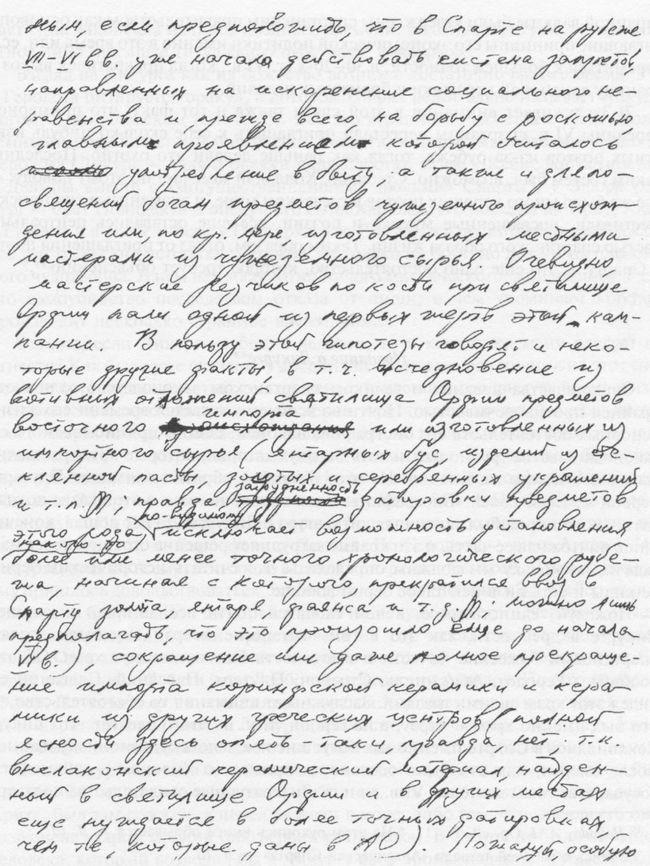 ным, если предположить, что в Спарте на рубеже
VII-VI вв. уже начала действовать система запретов,
направленных на искоренение социального не-
равенства и прежде всего на борьбу с роскошью
главным проявлением которой считалось
употребление в быту, а также и для по-
священий богам предметов чужеземного происхож-
дения или по кр. мере изготовленных местными
мастерами из чужеземного сырья. Очевидно,
мастерские резчиков по кости при святилище
Орфии пали одной из первых жертв этой кам-
пании. В пользу этой гипотезы говорят и неко-
торые другие факты в т.ч. исчезновение из
вотивных отложений святилища Орфии предметов
восточного импорта или изготовленных из
импортного сырья, янтарных бус, изделий из сте-
клянной пасты золотых и серебрянных украшений
и т.п., правда затруднённость датировки предметов
этого рода по-видимому исключает возможность установления
какого-то более или менее точного хронологического рубе-
жа, начиная с которого прекратился ввоз в
Спарту золота, янтаря, фаянса и т.д., можно лишь
предполагать, что это произошло еще до начала
VI в.), сокращение или даже полное прекраще-
ние импорта коринфской керамики и кера-
мики из других греческих центров (полной
ясности здесь опять-таки правда нет, т.к.
внелаконский керамический материал, найден-
ный в святилище Орфии и в других местах
еще нуждается в более точных датировках,
чем те которые даны в АО). Пожалуй, особую